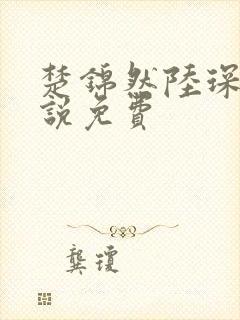 楚錦然陸琛
說免費
龔瓊